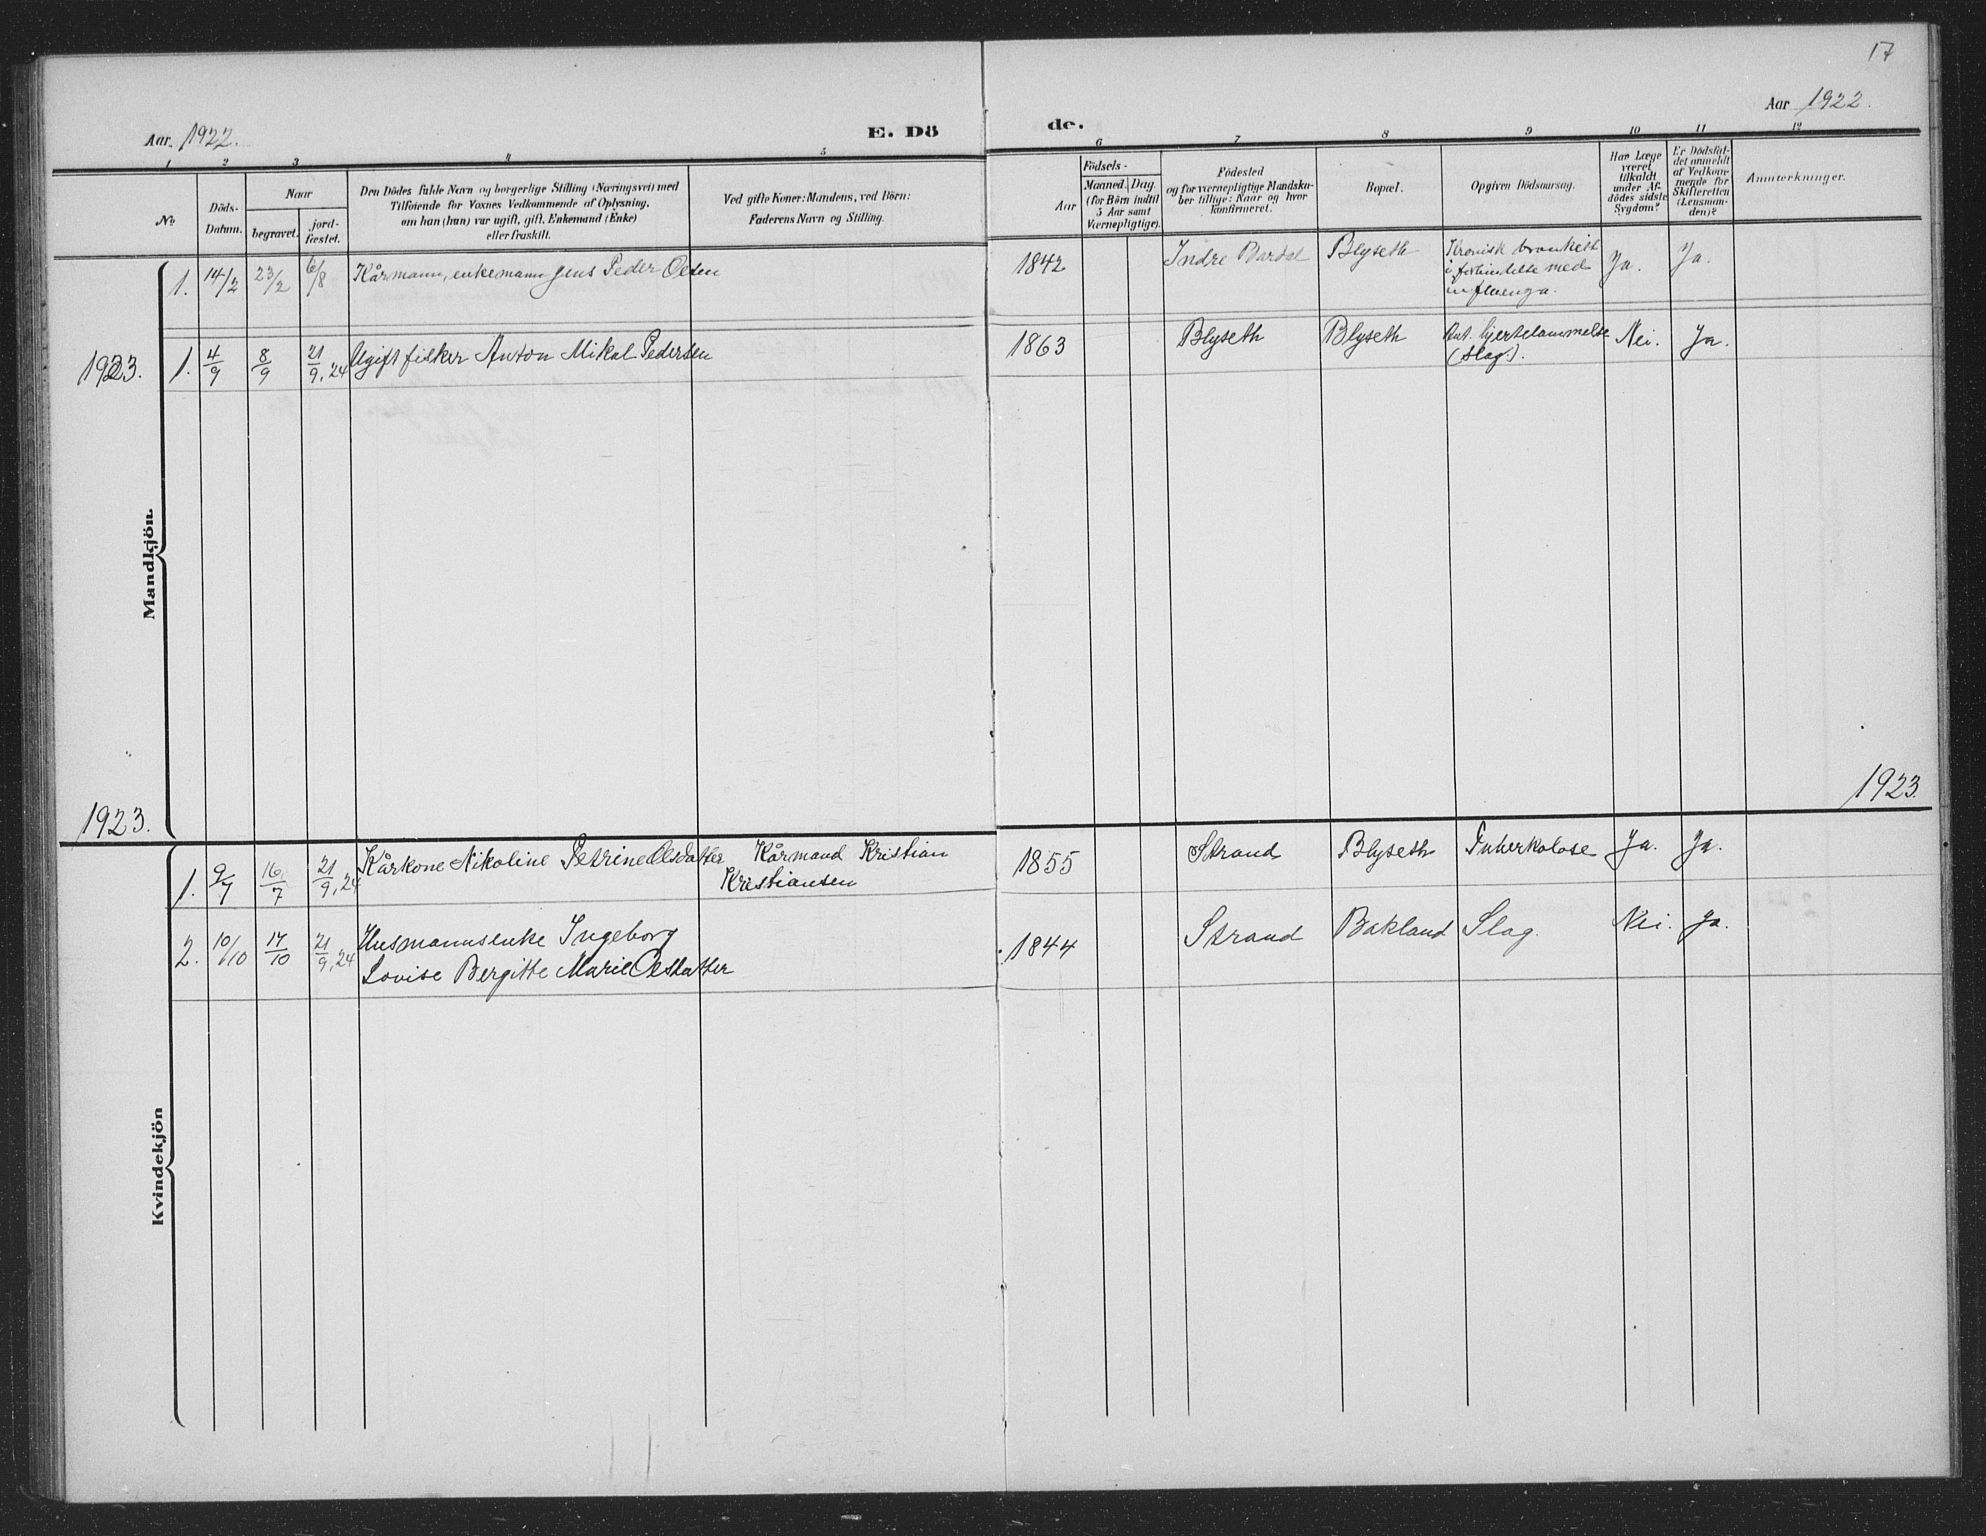 17
Aar 1922.
E. Dö
de.
Aar 1922.
1 2 3 4 5
6 7 8 9 10 11 12
No
Döds-
Datum.
Naar
begravet.
jord-
fæstet.
Den Dödes fulde Navn og borgerlige Stilling (Næringsvei) med
Tilföiende for Voxnes Vedkommende af Oplysning,
om han (hun) var ugift, gift, Enkemand (Enke)
eller fraskilt.
Ved gifte Koner: Mandens, ved Börn:
Faderens Navn og Stilling.
Födsels-
Aar
Maaned. Dag
(for Börn indtil
5 Aar samt
Værnepligtige).
Födested
og for værnepligtige Mandska-
ber tillige: Naar og hvor
konfirmeret.
Bopæl.
Opgiven Dödsaarsag.
Har Læge
været
tilkaldt
under Af-
dödes sidste
Sygdom?
Er Dödsfal-
det anmeldt
af Vedkom-
mende for
Skifteretten
(Lensman-
den)?
Anmærkninger.
Mandkjön.
1. 14/2 23/2 6/8 Kårmann, enkemann Jens Peder Olsen 1842 Indre Bardal Blyseth Kronisk bronkitt
i forbindelse med
influenza. Ja. Ja.
1923. 1. 4/9 8/9 21/9, 24 Ugift fisker Anton Mikal Pedersen 1863 Blyseth Blyseth Ant. hjertelammelse
(slag). Nei. Ja.
1923.
1923.
Kvindekjön
1. 9/7 16/7 21/9, 24 Kårkone Nikoline Petrine Olsdatter Kårmand Kristian
Kristiansen 1855 Strand Blyseth Tuberkolose Ja. Ja.
2. 10/10 17/10 21/9, 24 Husmannsenke Ingeborg
Lovise Bergitte Marie Olsdatter 1844 Strand Bakland Slag. Nei. Ja.